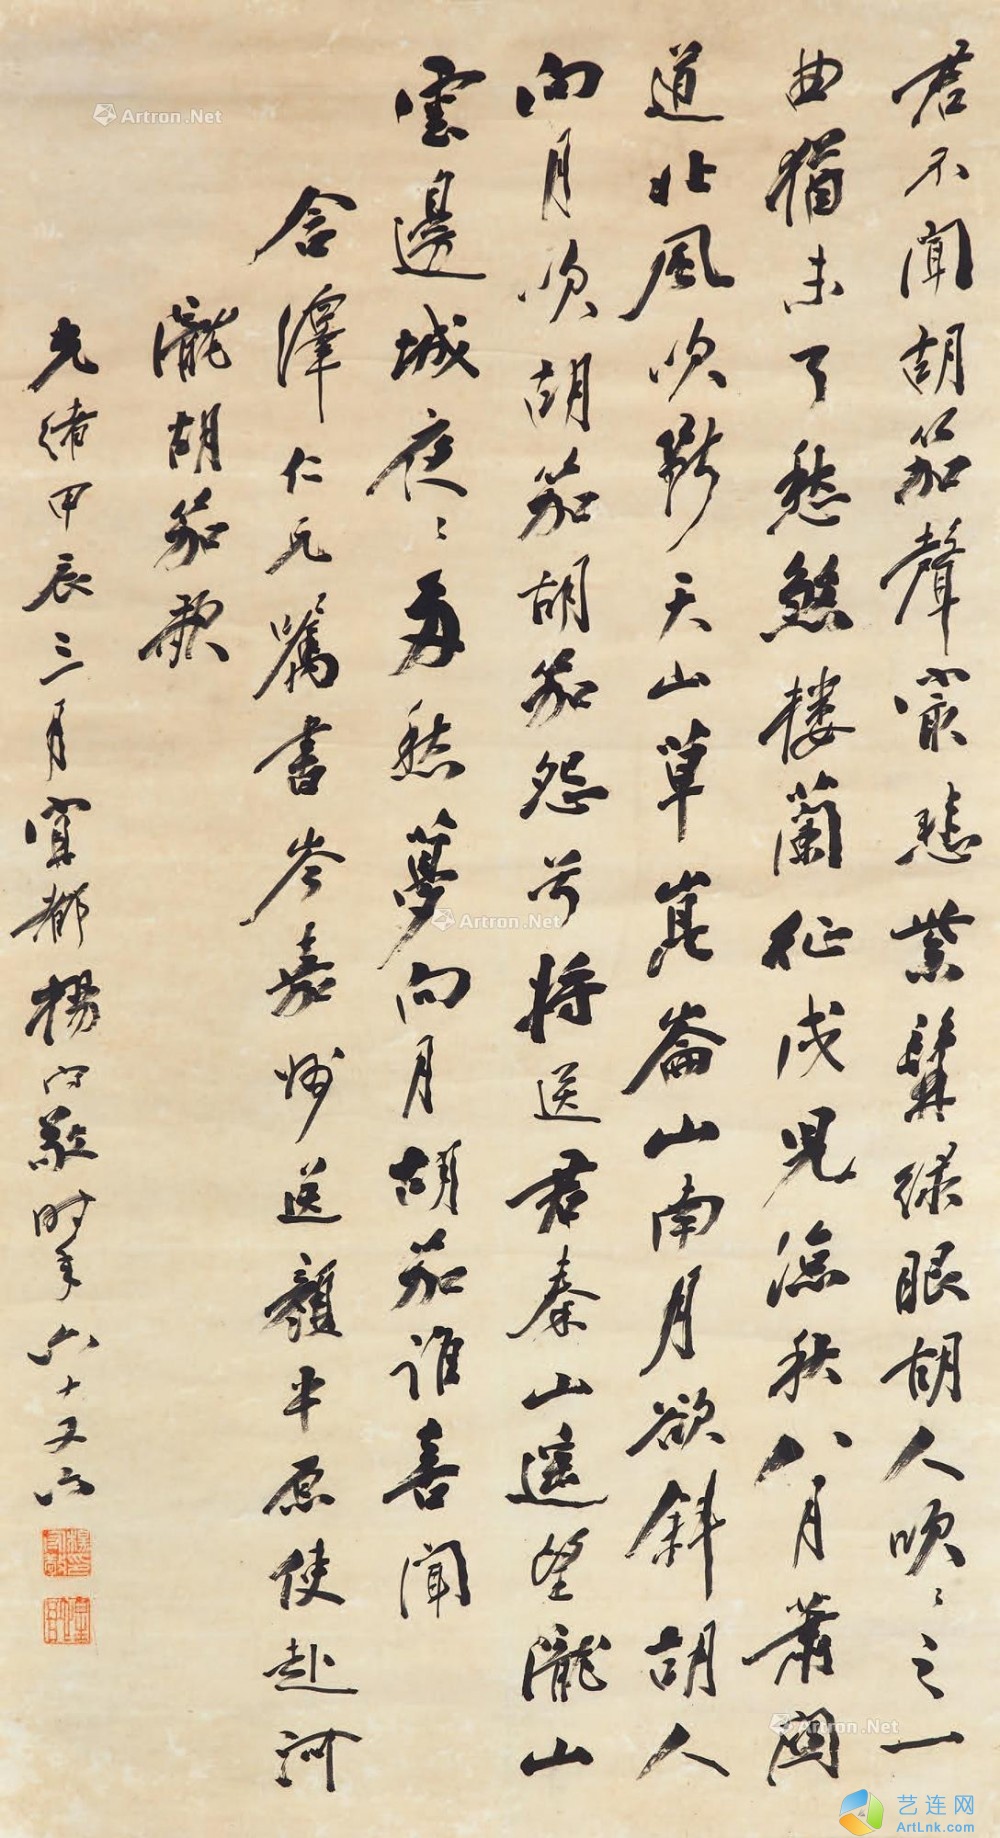 君不聞胡笳聲最悲紫髯綠眼胡人吹〻之一
曲猶未了愁煞樓蘭征戍兒涼秋八月蕭關
道北風吹斷天山草崑崙山南月欲斜胡人
向月吹胡笳胡笳怨兮將送君秦山遙望隴山
雲邊城夜〻多愁夢向月胡笳誰喜聞
含澤仁兄囑書岑嘉州送顏平原使赴河
隴胡笳歌
光緒甲辰三月宜都楊守敬時年六十又六
Artron.Net
Artron.Net
Artron.Net
艺连网
ArtLnk.com